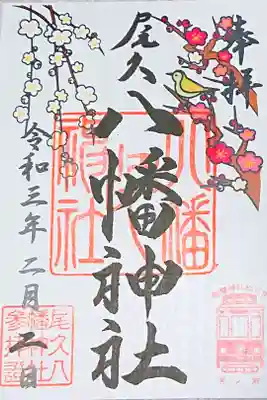 奉拝
尾久八幡神社
令和三年二月二日
八幡神社
尾久八
幡神社
参拝証